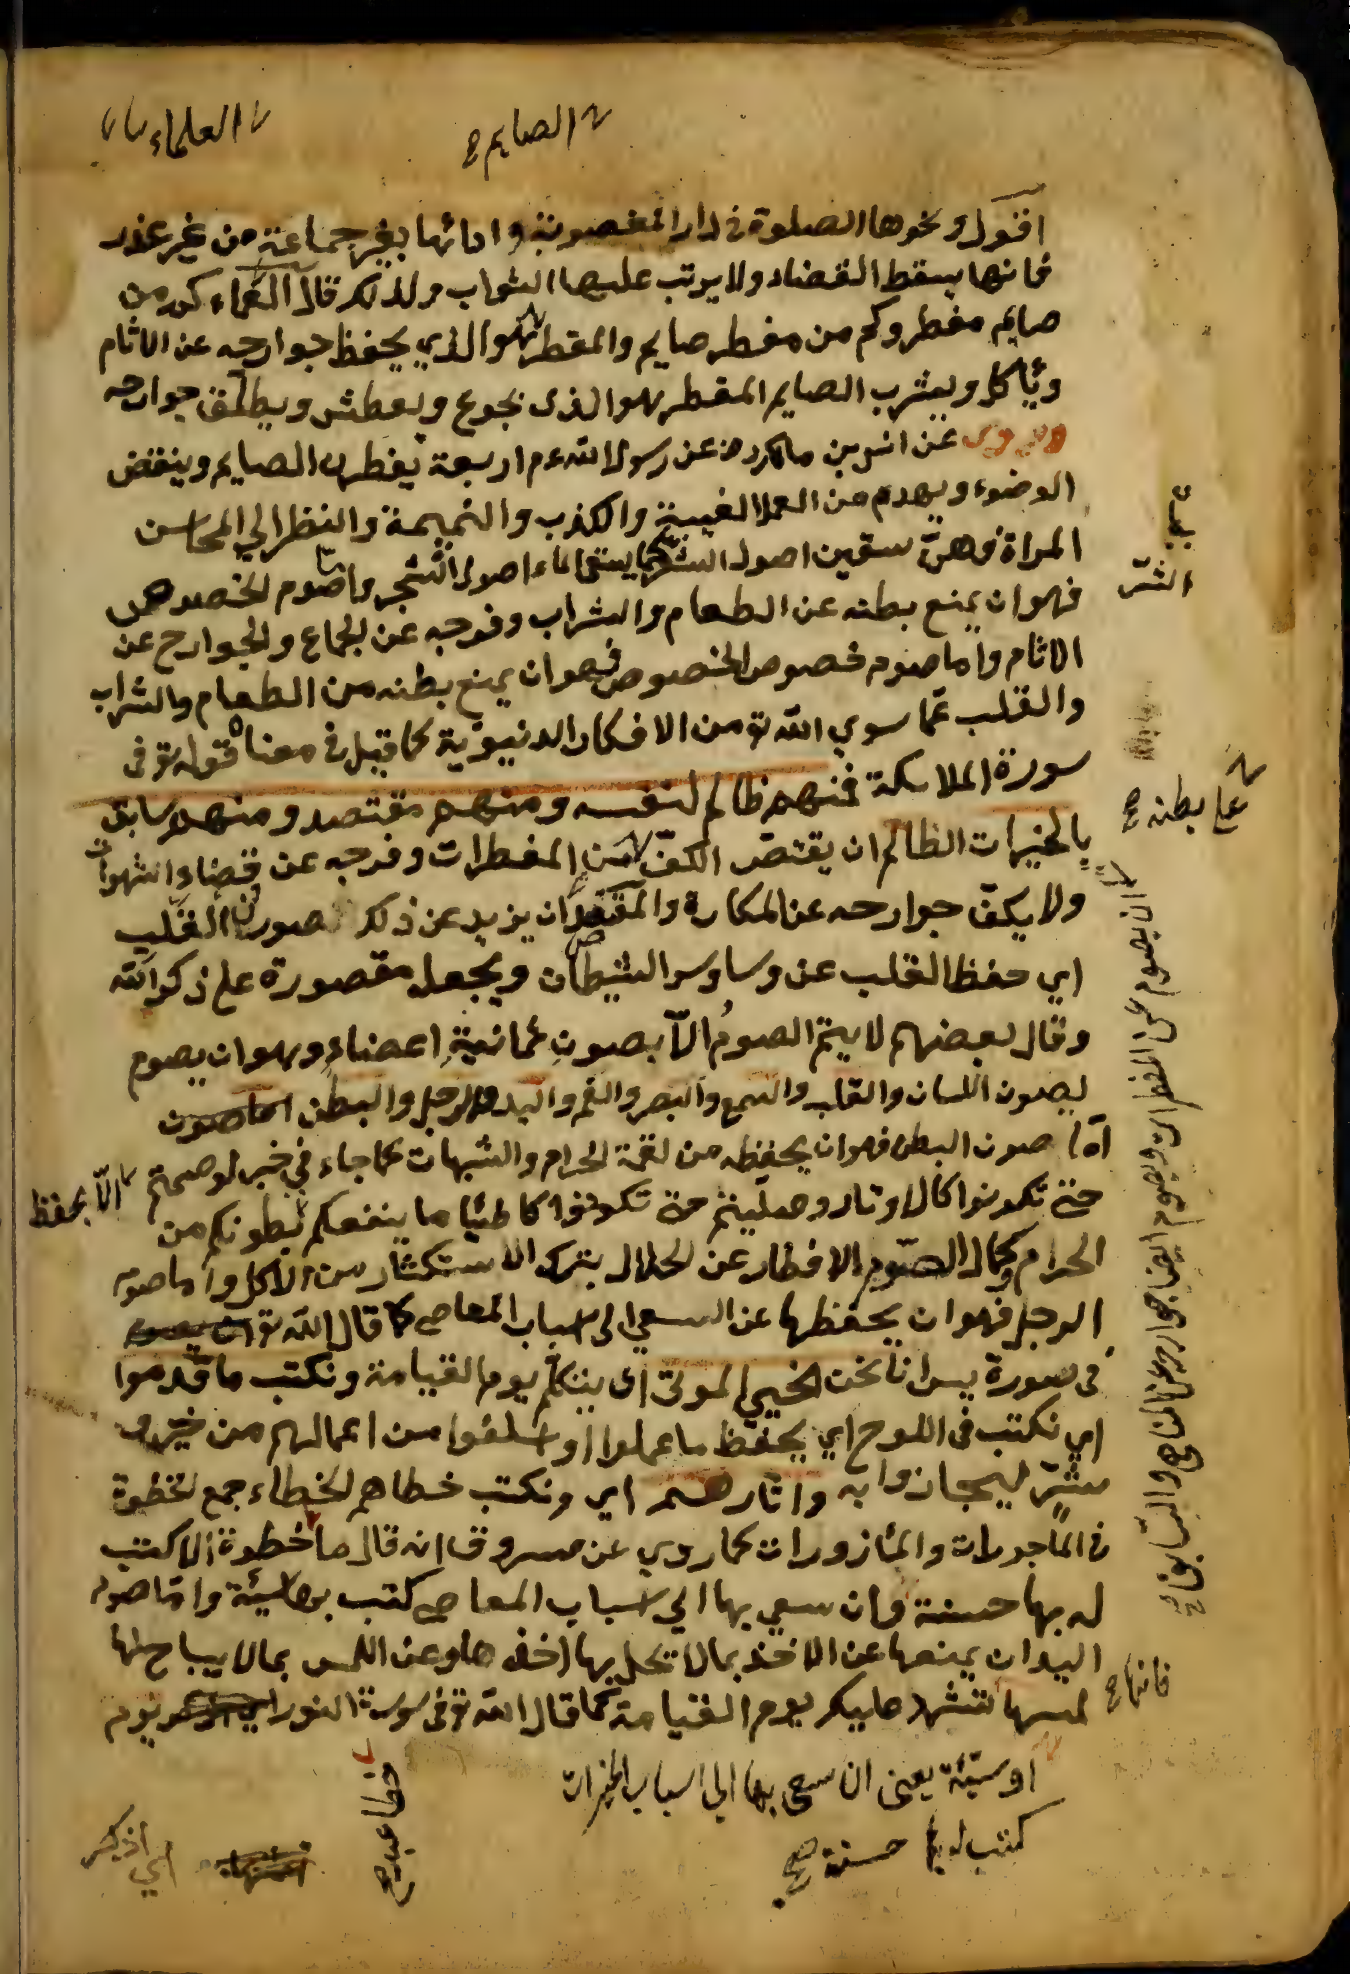 العلماء
الصايم
اقول ونحوها الصلوة في دار المغصوبة وادائها بغير جماعة من غير عذر
فانها يسقط القضاء ولا يرتب عليها الثواب ولذلك قال العلماء كم من
صايم مفطر وكم من مفطر صايم والمفطر هو الذي يحفظ جوارحه عن الاثام
وياكل ويشرب الصايم المفطر هو الذى يجوع ويعطش ويطلق جوارحه
وروى عن انس بن مالك رضه عن رسول الله عم اربعة يفطر بها الصايم وينقض
الوضوء ويهدم من العمل الغيبة والكذب والنميمة والنظر الي المحاسن
المراة وهن سقين اصول الشر كما يسقى الماء اصول الشجر واما صوم الخصوص
فهو ان يمنع بطنه عن الطعام والشراب وفرجه عن الجماع والجوارح عن
الاثام واما صوم خصوص الخصوص فهو ان يمنع بطنه من الطعام والشراب
والقلب عما سوي الله تع من الافكار الدنيوية كما قيل في معناه قوله تع فى
سورة الملائكة فمنهم ظالم لنفسه ومنهم مقتصد ومنهم سابق
بالخيرات الظالم ان يقتصر الكف عن المفطرات وفرجه عن قضاء الشهوات
ولا يكف جوارحه عن المكارة والمقتصد ان يزيد عن ذلك بصون القلب
اي حفظ القلب عن وساوس الشيطان ويجعل مقصورة على ذكر الله
وقال بعضهم لا يتم الصوم الا بصون ثمانية اعضاء وهو ان يصوم
بصون اللسان والقلب والسمع والبصر والفم واليد والرجل والبطن اما صون
اما صون البطن فهو ان يحفظه من لقمة الحرام والشبهات كما جاء في خبر لو صمتم
حتى تكونوا كالاوتار وصليتم حتى تكونوا كا ما ينفعكم بطونكم من
الحرام وكمال الصوم الافطار عن الحلال بترك الاستكثار من الاكل واما صوم
الرجل فهو ان يحفظها عن السعي الى اسباب المعاصى كما قال الله تع
فى سورة يس انا نحن نحيي الموتى اى يوم القيامة ونكتب ما قدموا
اي نكتب فى اللوح اي يحفظ ما عملوا او اسلفوا من اعمالهم من خير و
شر ليجازوا به واثارهم اي ونكتب خطاهم الخطاء جمع الخطوة
في الماجورات والمأزورات كما روي عن مسروق انه قال ما خطوة الا كتب
له بها حسنة وان سعي بها الي اسباب المعاصى كتب بها سيئة واما صوم
اليد ان يمنعها عن الاخذ بما لا تحل بها اخذها وعن اللمس بما لا يباح لها
لمسها لتشهد عليكم يوم القيامة كما قال الله تع فى سورة النور يوم
الشر
على بطنه صح
ان يصوم عن المفطرات ويصوم ايضا جوارحه عن المناهى والسابق
الا بحفظ
فانها صح
او سيئة يعنى ان سعى بها الى اسباب الخيرات
كتب له بها حسنة صح
خطا عبد صح
اي اذكر